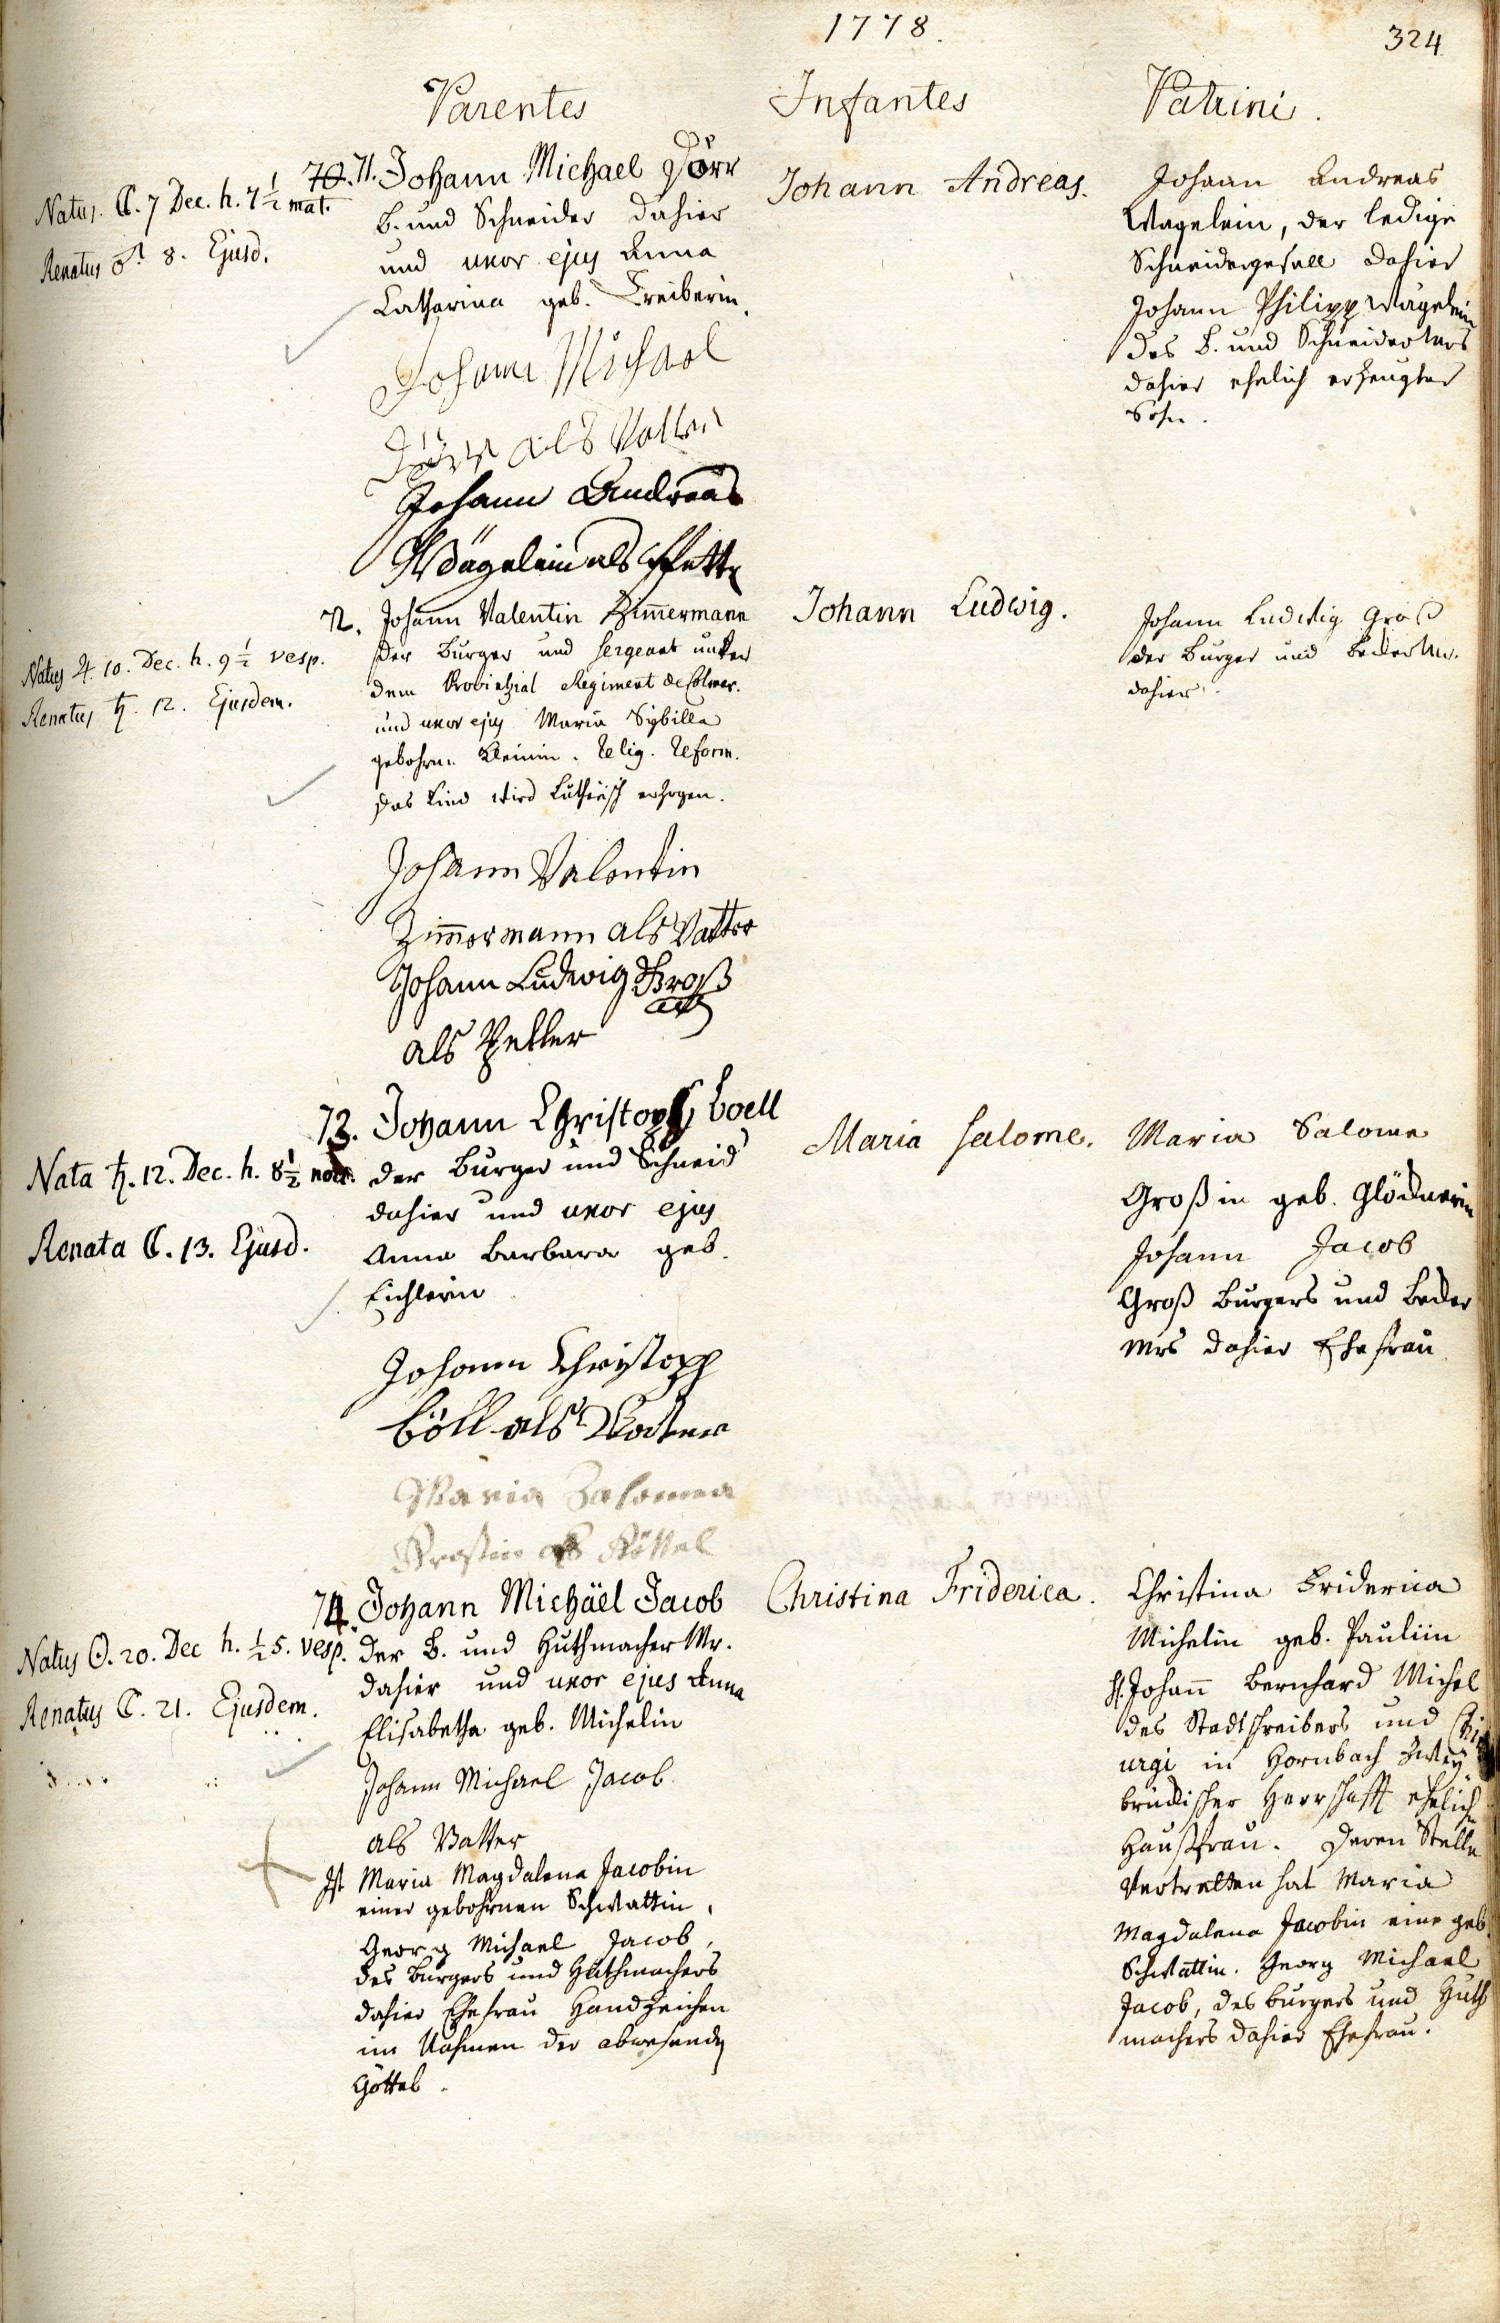 1778.
324
Parentes
Infantes
Patrini.
Natus ☾. 7 Dec. h. 7 1/2 mat.
Renatus ♂. 8. Ejusd.
70. 71. Johann Michael Dörr
B. und Schneider dahier
und uxor ejus Anna
Catharina geb. Treiberin.
Johann Michael
Dörr als Vatter
Johann Andreas
Wägelein als Pfetter
Johann Andreas.
Johann Andreas
Wagelein, der ledige
Schneidergesell dahier
Johann Philipp Wägelein
des B. und Schneiders
dahier ehelich erzeugter
Sohn.
Natus ♃. 10. Dec. h. 9 1/2 vesp.
Renatus ♄. 12. Ejusdem.
72. Johann Valentin Zim̅ermann
der Burger und Sergeant unter
dem Provinzial Regiment de Colmar.
und uxor ejus Maria Sybilla
gebohrne. Relig. Reform.
Das Kind wird Lutherisch erzogen.
Johann Valentin
Zim̅ermann als Vatter
Johann Ludwig Groß
als Petter
Johann Ludwig.
Johann Ludwig Groß
der Burger und Becker Mr.
dahier.
Nata ♄. 12. Dec. h. 8 1/2 noct.
Renata ☾. 13. Ejusd.
73. Johann Christoph Boell
der Burger und Schneid
dahier und uxor ejus
Anna Barbara geb.
Eichlerin
Johann Christoph
Böll als Vatter
Maria Salomea
Großin als Göttel
Maria Salome.
Maria Salome
Großin geb. Glöcknerin
Johann Jacob
Groß Burgers und Becker
Mrs dahier Ehefrau
Natus ☉. 20. Dec h. 1/2 5. vesp.
Renatus ☾. 21. Ejusdem.
74. Johann Michäel Jacob
der B. und Huthmacher Mr.
dahier und uxor ejus Anna
Elisabetha geb. Michelin
Johann Michael Jacob
als Vatter
Ist Maria Magdalena Jacobin
einer gebohrnen Schwattin,
Georg Michael Jacob,
des Burgers und Huthmachers
dahier Ehefrau Handzeichen
im Nahmen der abwesenden
Göttel.
Christina Friderica.
Christina Friderica
Michelin geb. Pauliin
H. Johan̅ Bernhard Michel
des Stadtschreibers und Chir
urgi in Hornbach Zwey
brückischer Herrschafft ehelich
Haußfrau. Deren Stelle
Vertretten hat Maria
Magdalena Jacobin eine geb.
Schwattin. Georg Michael
Jacob, des Burgers und Huth
machers dahier Ehefrau.